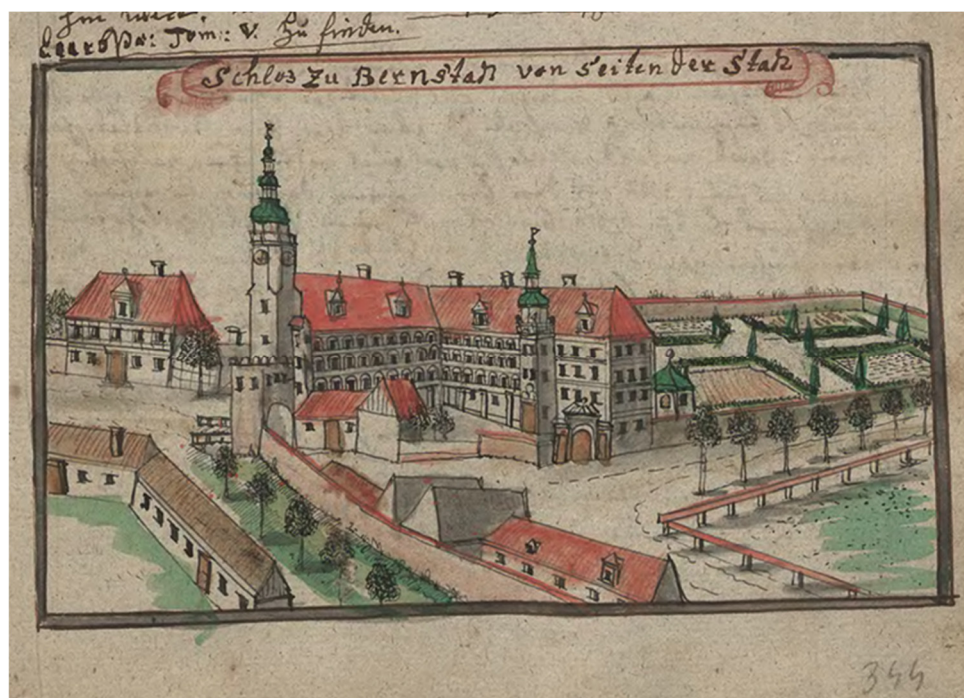 Tom: V. Zu finden.
Schlos Zu Bernstatt von Seiten der Statt
344